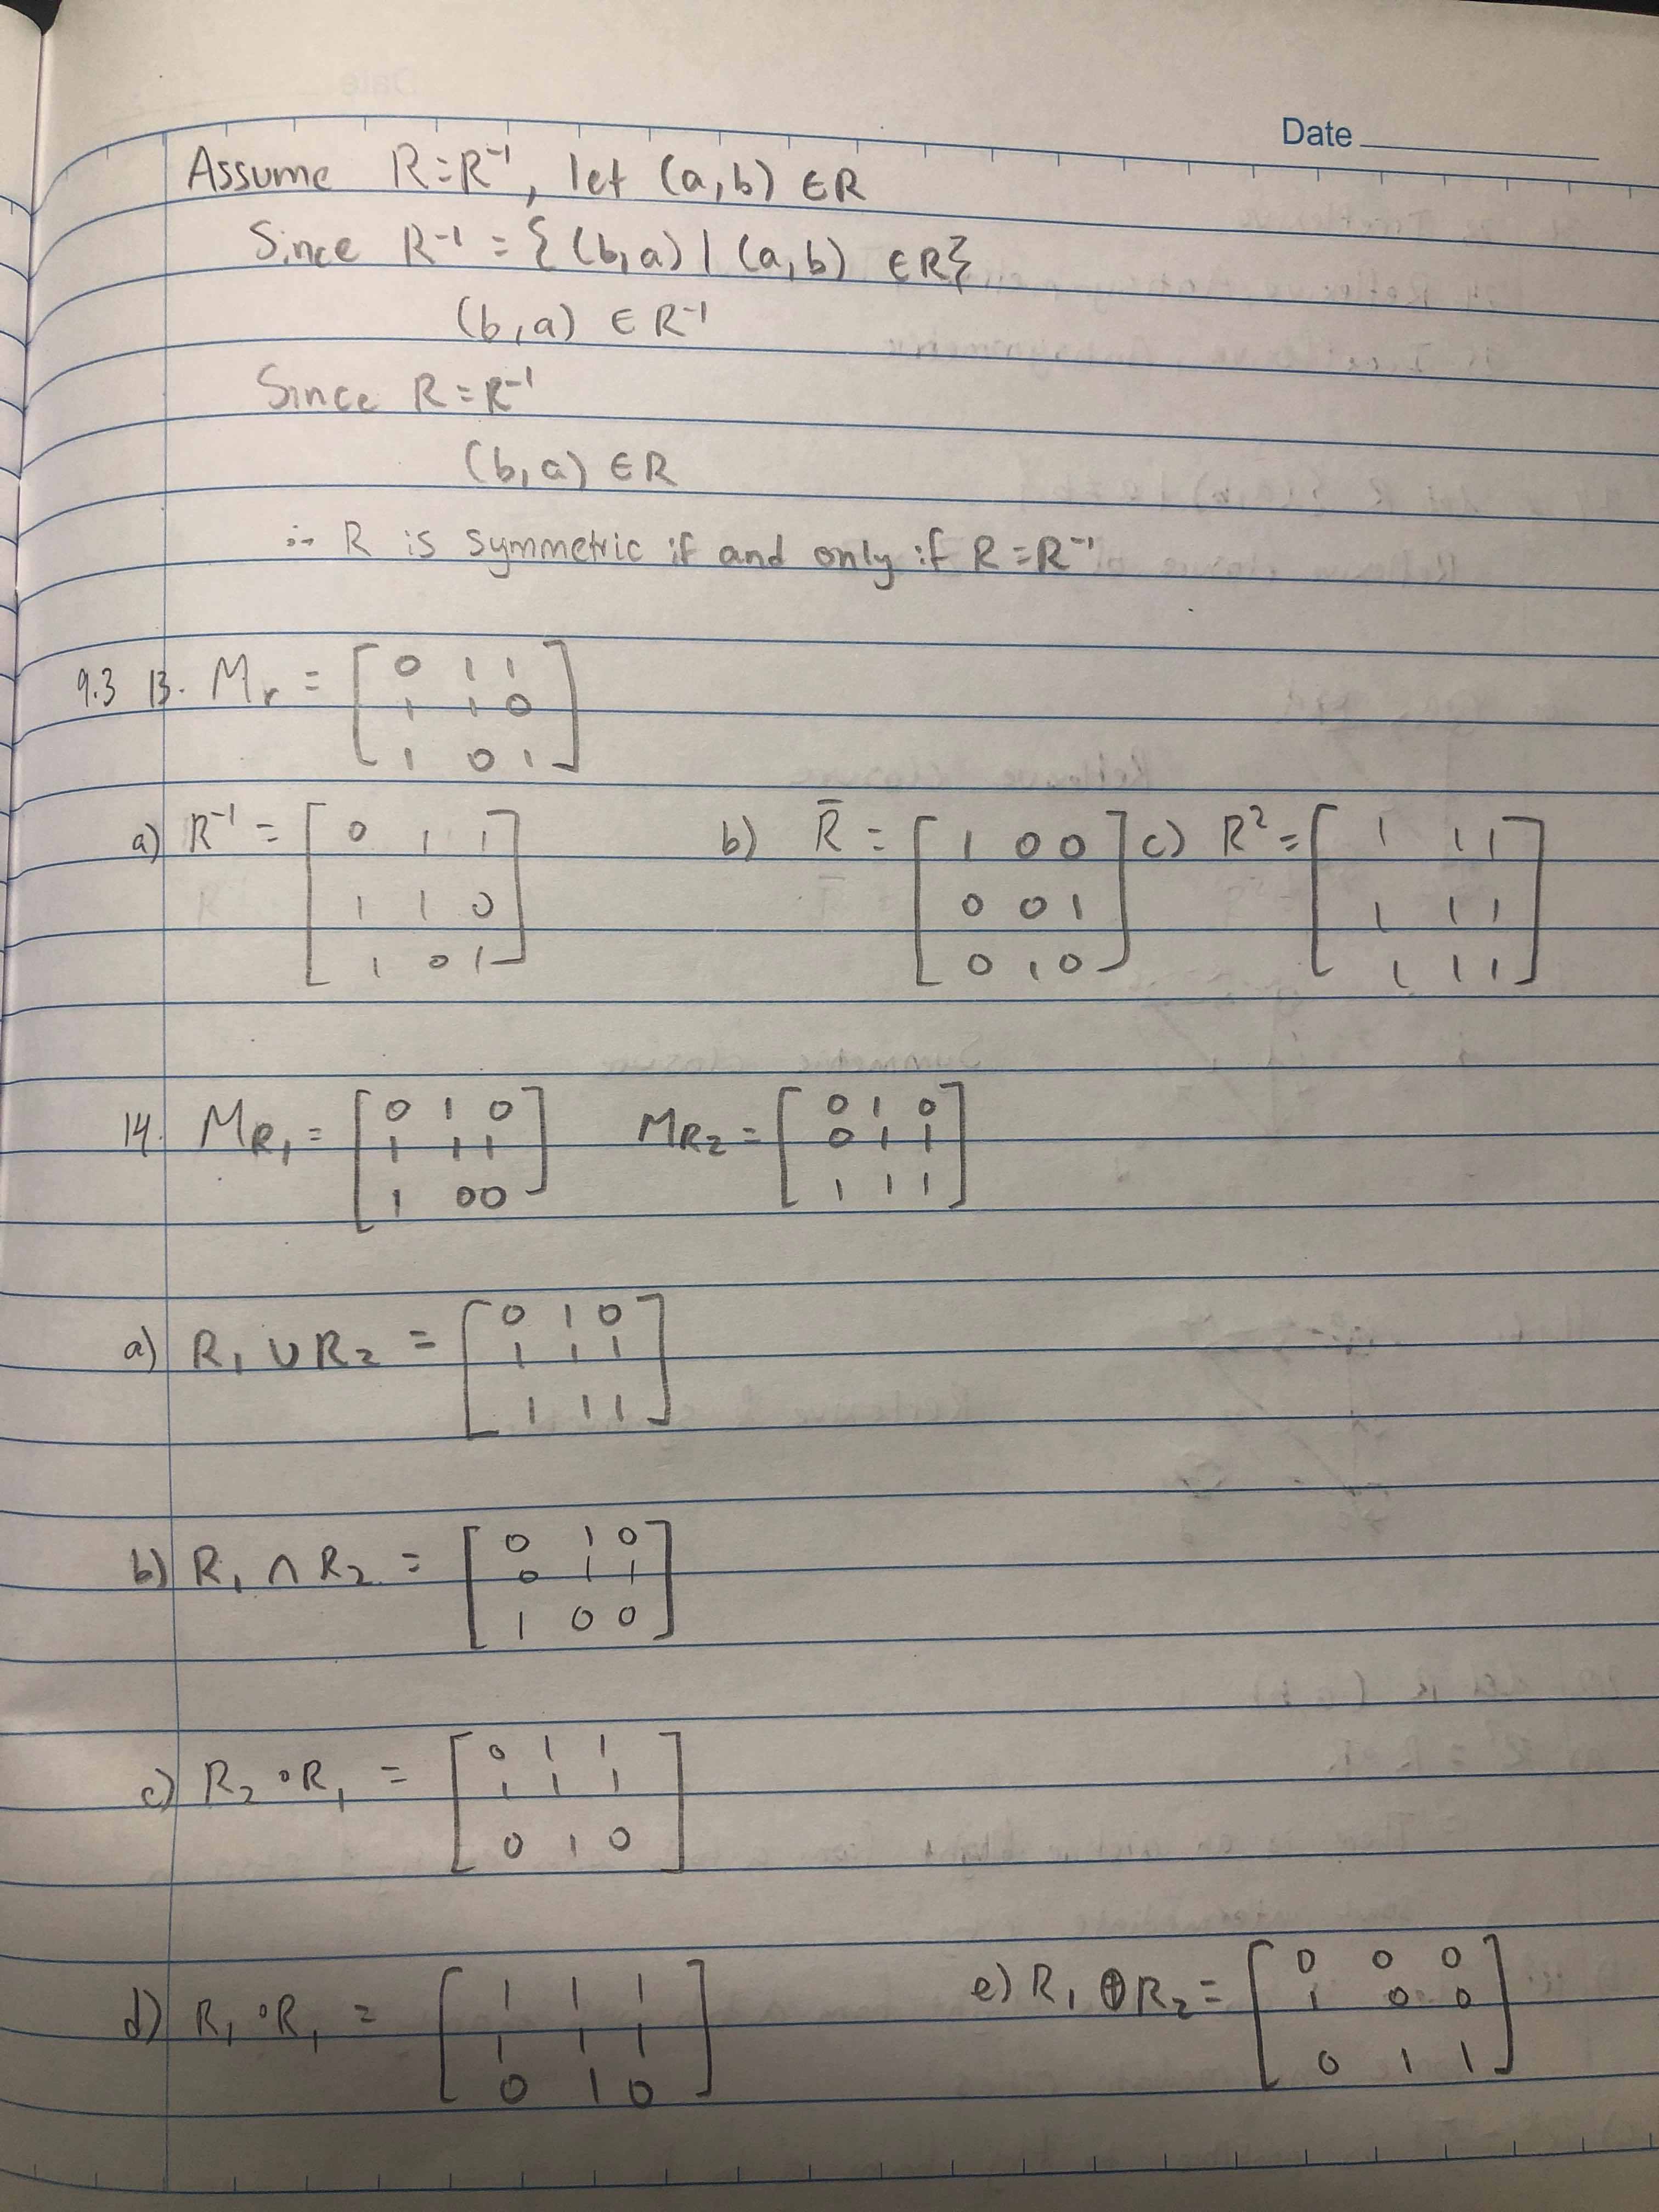 Date
Assume R=R⁻¹, let (a,b) ∈R
Since R⁻¹ = {(b,a) | (a,b) ∈R}
(b,a) ∈ R⁻¹
Since R=R⁻¹
(b,a) ∈R
∴ R is symmetric if and only if R=R⁻¹
9.3 13. Mr = [ 0 1 1
1 1 0
1 0 1 ]
a) R⁻¹ = [ 0 1 1
1 1 0
1 0 1 ]
b) R̄ = [ 1 0 0
0 0 1
0 1 0 ]
c) R² = [ 1 1 1
1 1 1
1 1 1 ]
14. MR₁ = [ 0 1 0
1 1 1
1 0 0 ]
MR₂ = [ 0 1 0
0 1 1
1 1 1 ]
a) R₁ ∪ R₂ = [ 0 1 0
1 1 1
1 1 1 ]
b) R₁ ∩ R₂ = [ 0 1 0
0 1 1
1 0 0 ]
c) R₂ ∘ R₁ = [ 0 1 1
1 1 1
0 1 0 ]
d) R₁ ∘ R₁ = [ 1 1 1
1 1 1
0 1 0 ]
e) R₁ ⊕ R₂ = [ 0 0 0
1 0 0
0 1 1 ]